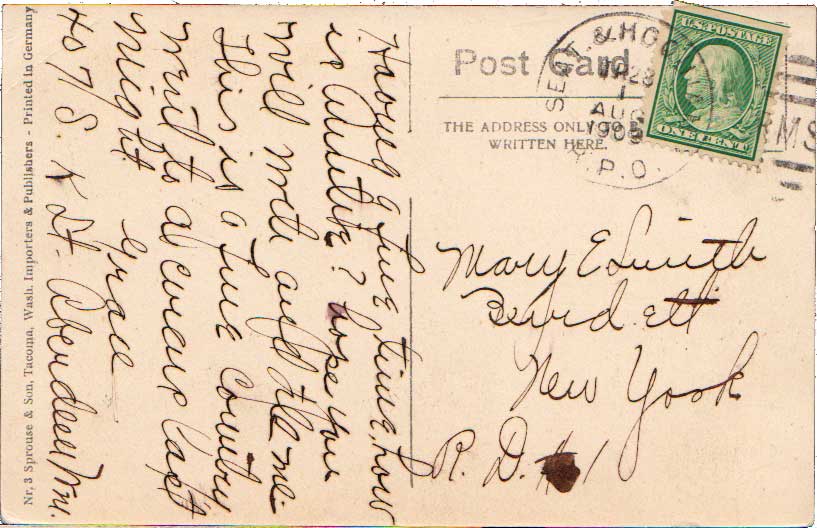 Post Card
THE ADDRESS ONLY TO BE
WRITTEN HERE.
U.S. POSTAGE
ONE CENT
SEAT. & HOQUIAM
AUG
1909
R.P.O.
RMS
Having a fine time, how
is Auntie? hope you
will write and tell me.
This is a fine country
went to a circus last
night.
Grace
407 S K St. Aberdeen Wn.
Mary E Smith
Burdett
New York
R. D. #1
Nr. 3 Sprouse & Son, Tacoma, Wash. Importers & Publishers - Printed in Germany